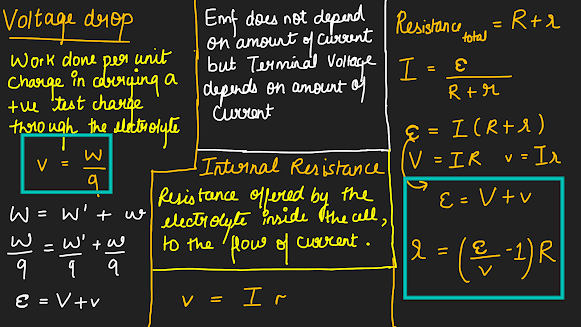 Voltage drop
Work done per unit
Charge in carrying a
+ve test charge
through the electrolyte
v = w/q
W = W' + w
W/q = W'/q + w/q
ε = V + v
Emf does not depend
on amount of current
but Terminal Voltage
depends on amount of
Current
Internal Resistance
Resistance offered by the
electrolyte inside the cell,
to the flow of current.
v = I r
Resistance total = R + r
I = ε/(R + r)
ε = I (R + r)
V = IR v = Ir
ε = V + v
r = (ε/v - 1) R